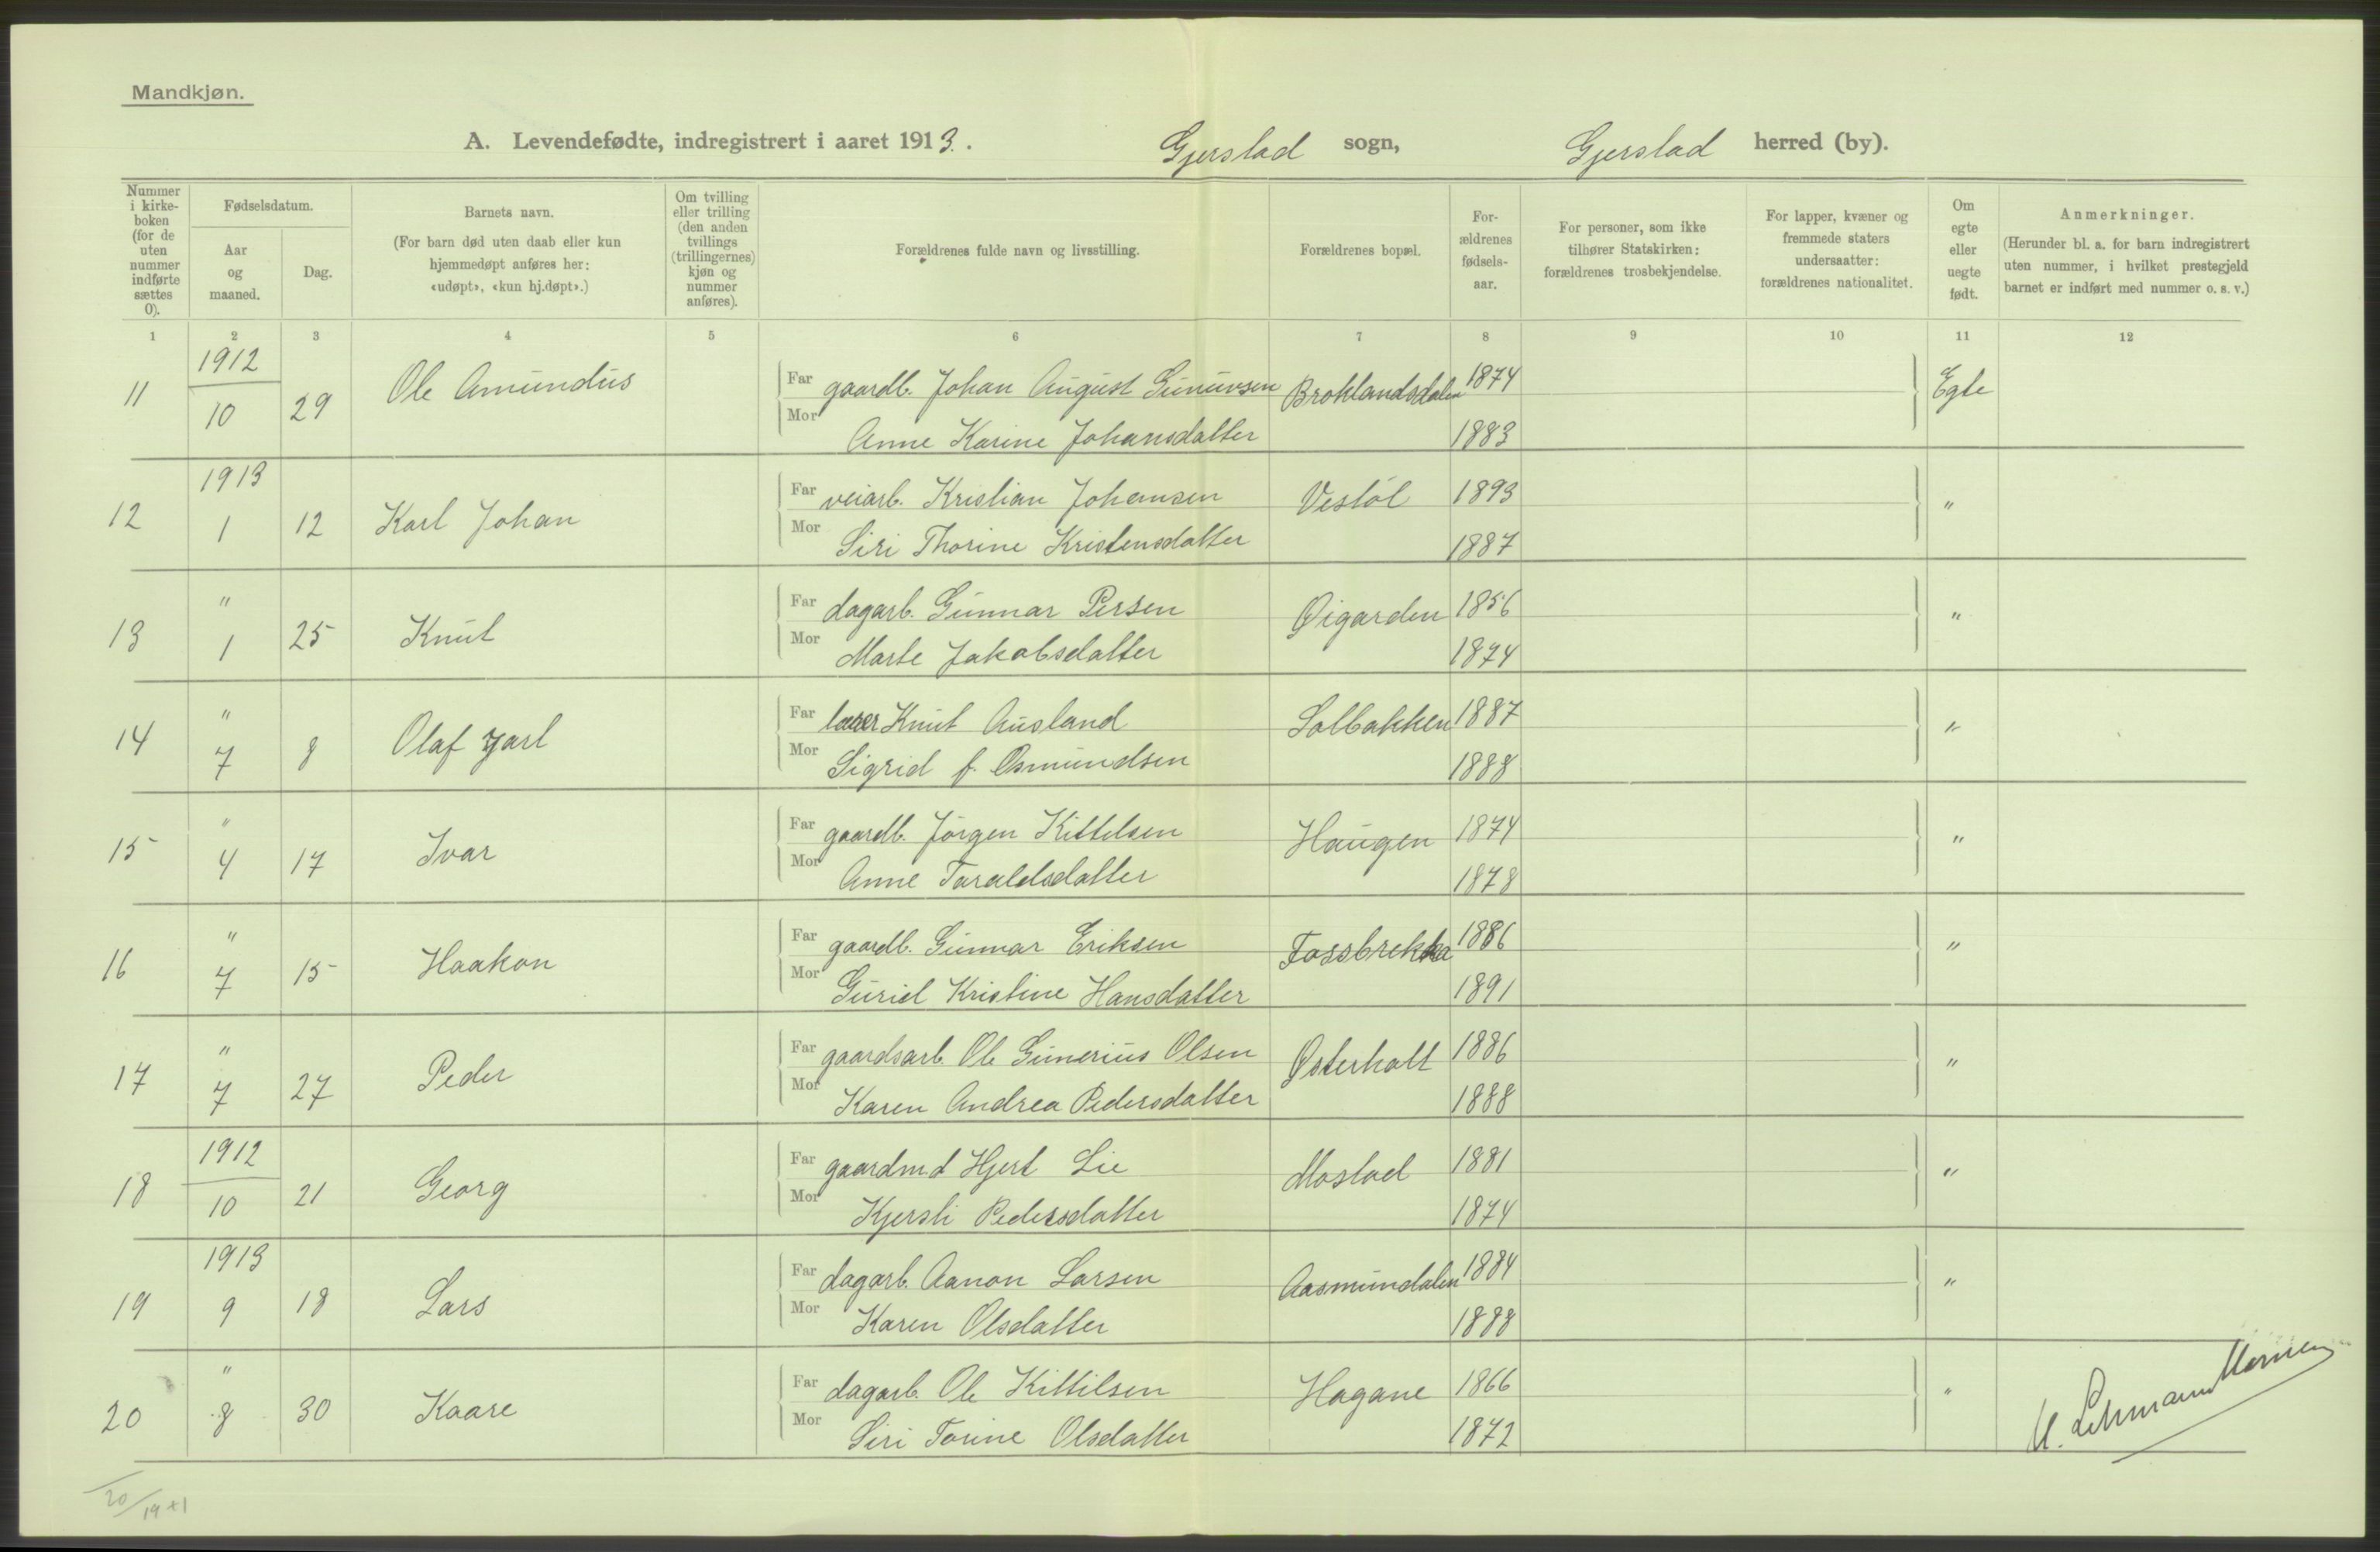 Mandkjøn.
A. Levendefødte, indregistrert i aaret 1913. Gjerstad sogn, Gjerstad herred (by).
Nummer i kirke-boken (for de uten nummer indførte sættes 0).
Fødselsdatum.
Aar og maaned.
Dag.
Barnets navn.
(For barn død uten daab eller kun hjemmedøpt anføres her: «udøpt», «kun hj.døpt».)
Om tvilling eller trilling (den anden tvillings (trillingernes) kjøn og nummer anføres).
Forældrenes fulde navn og livsstilling.
Forældrenes bopæl.
For-ældrenes fødsels-aar.
For personer, som ikke tilhører Statskirken: forældrenes trosbekjendelse.
For lapper, kvæner og fremmede staters undersaatter: forældrenes nationalitet.
Om egte eller uegte født.
Anmerkninger.
(Herunder bl. a. for barn indregistrert uten nummer, i hvilket prestegjeld barnet er indført med nummer o. s. v.)
1 2 3 4 5 6 7 8 9 10 11 12
11 1912 10 29 Ole Amundus Far gaardb. Johan August Gunuvsen Broklandsdalen 1874 Egte
Mor Anne Karine Johansdatter 1883
12 1913 1 12 Karl Johan Far veiarb. Kristian Johansen Vestøl 1893 "
Mor Siri Thorine Kristensdatter 1887
13 " 1 25 Knut Far dagarb. Gunnar Persen Øigarden 1856 "
Mor Marte Jakobsdatter 1874
14 " 7 8 Olaf Jarl Far lærer Knut Ausland Solbakken 1887 "
Mor Sigrid f. Osmundsen 1888
15 " 4 17 Ivar Far gaardb. Jörgen Kittelsen Haugen 1874 "
Mor Anne Taraldsdatter 1878
16 " 7 15 Haakon Far gaardb. Gunnar Eriksen Fossbrekka 1886 "
Mor Guriel Kristine Hansdatter 1891
17 " 7 27 Peder Far gaardsarb. Ole Gunerius Olsen Østerholt 1886 "
Mor Karen Andrea Pedersdatter 1888
18 1912 10 21 Georg Far gaardmd Hjert Lie Mostad 1881 "
Mor Kjersti Pedersdatter 1874
19 1913 9 18 Lars Far dagarb. Aanon Larsen Aasmundalen 1884 "
Mor Karen Olsdatter 1888
20 " 8 30 Kaare Far dagarb. Ole Kittilsen Hagane 1866 "
Mor Siri Torine Olsdatter 1872
Lehmann
20/19+1